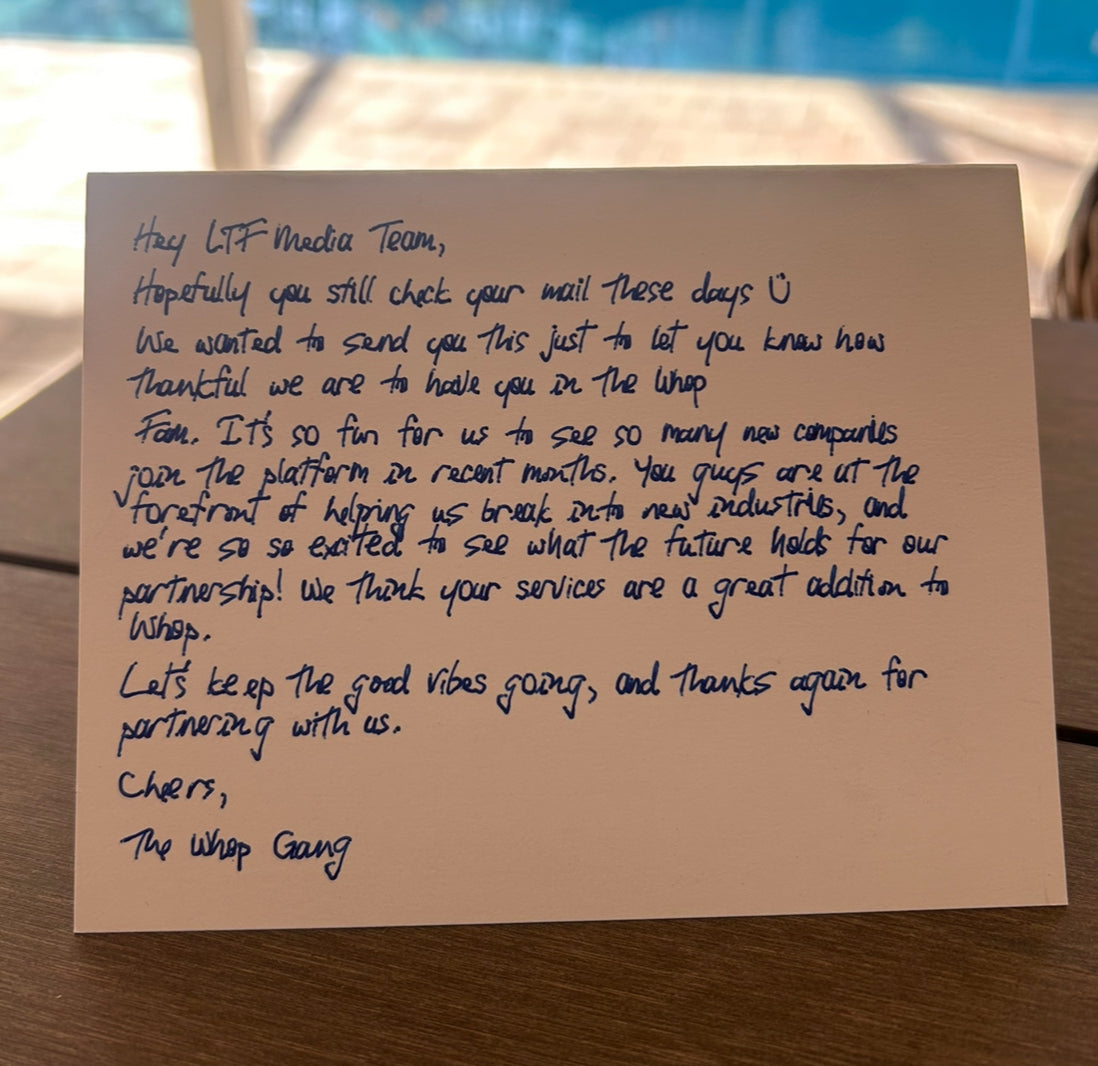 Hey LTF Media Team,
Hopefully you still check your mail these days Ü
We wanted to send you this just to let you know how
thankful we are to have you in the Whop
Fam. It's so fun for us to see so many new companies
join the platform in recent months. You guys are at the
forefront of helping us break into new industries, and
we're so so excited to see what the future holds for our
partnership! We think your services are a great addition to
Whop.
Let's keep the good vibes going, and thanks again for
partnering with us.
Cheers,
The Whop Gang